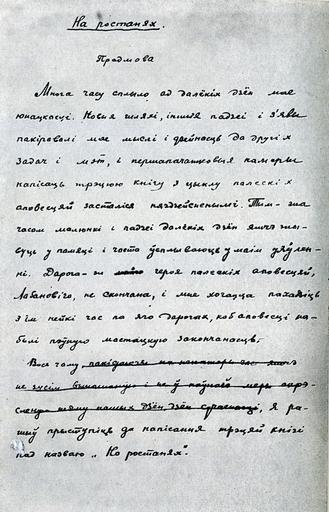 На ростанях.
Прадмова
Многа часу сплыло ад далёкіх дзён мае
юнацкасці. Новыя шляхі, іншыя падзеі і з'явы
пакіравалі мае мыслі і дзейнасць да другіх
задач і мэт, і першапачатковыя намеры
напісаць трэцюю кнігу з цыклу палескіх
аповесцей засталіся няздзейсненымі. Тым-жа
часам малюнкі і падзеі далёкіх дзён яшчэ жы-
вуць у памяці і часта ўсплываюць у маім уяўлен-
ні. Дарога-ж героя палескіх аповесцяй,
Лабановіча, не скончана, і мне хочацца пахадзіць
з ім нейкі час па яго дарогах, каб аповесці на-
былі пэўную мастацкую закончанасць.
Вось чаму,
не зусім і не ў поўнай меры
дзён, я ра-
шыў прыступіць да напісання трэцяй кнігі
пад назваю „На ростанях".